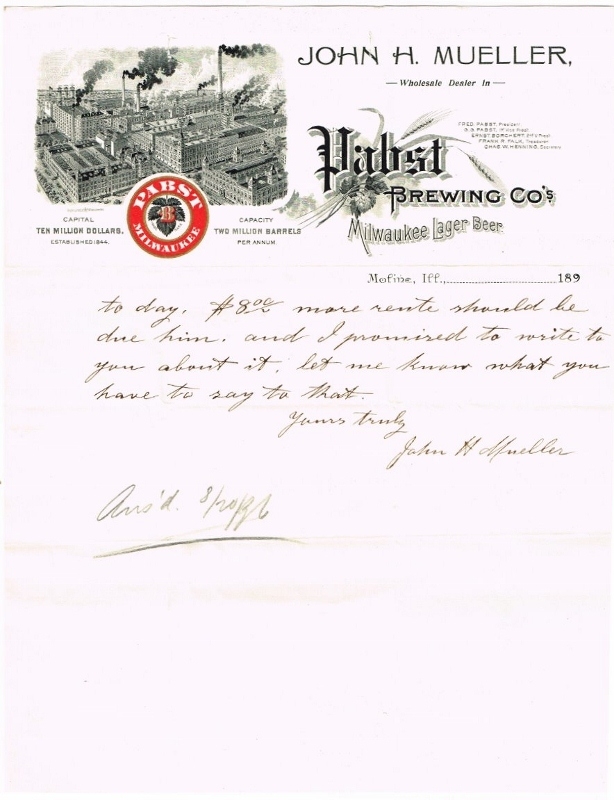 JOHN H. MUELLER,
Wholesale Dealer In
FRED. PABST, President
G.G. PABST, 1st Vice Prest
ERNST BORCHERT, 2nd V. Prest
FRANK R. FALK, Treasurer
CHAS. W. HENNING, Secretary
Pabst
BREWING CO'S
Milwaukee Lager Beer
PABST
B
MILWAUKEE
CAPITAL
TEN MILLION DOLLARS.
ESTABLISHED 1844.
CAPACITY
TWO MILLION BARRELS
PER ANNUM.
Moline, Ill., 189
to day. $8.00 more rente should be
due him. and I promised to write to
you about it, let me know what you
have to say to that.
Yours truly
John H Mueller
Ans'd. 8/20/96